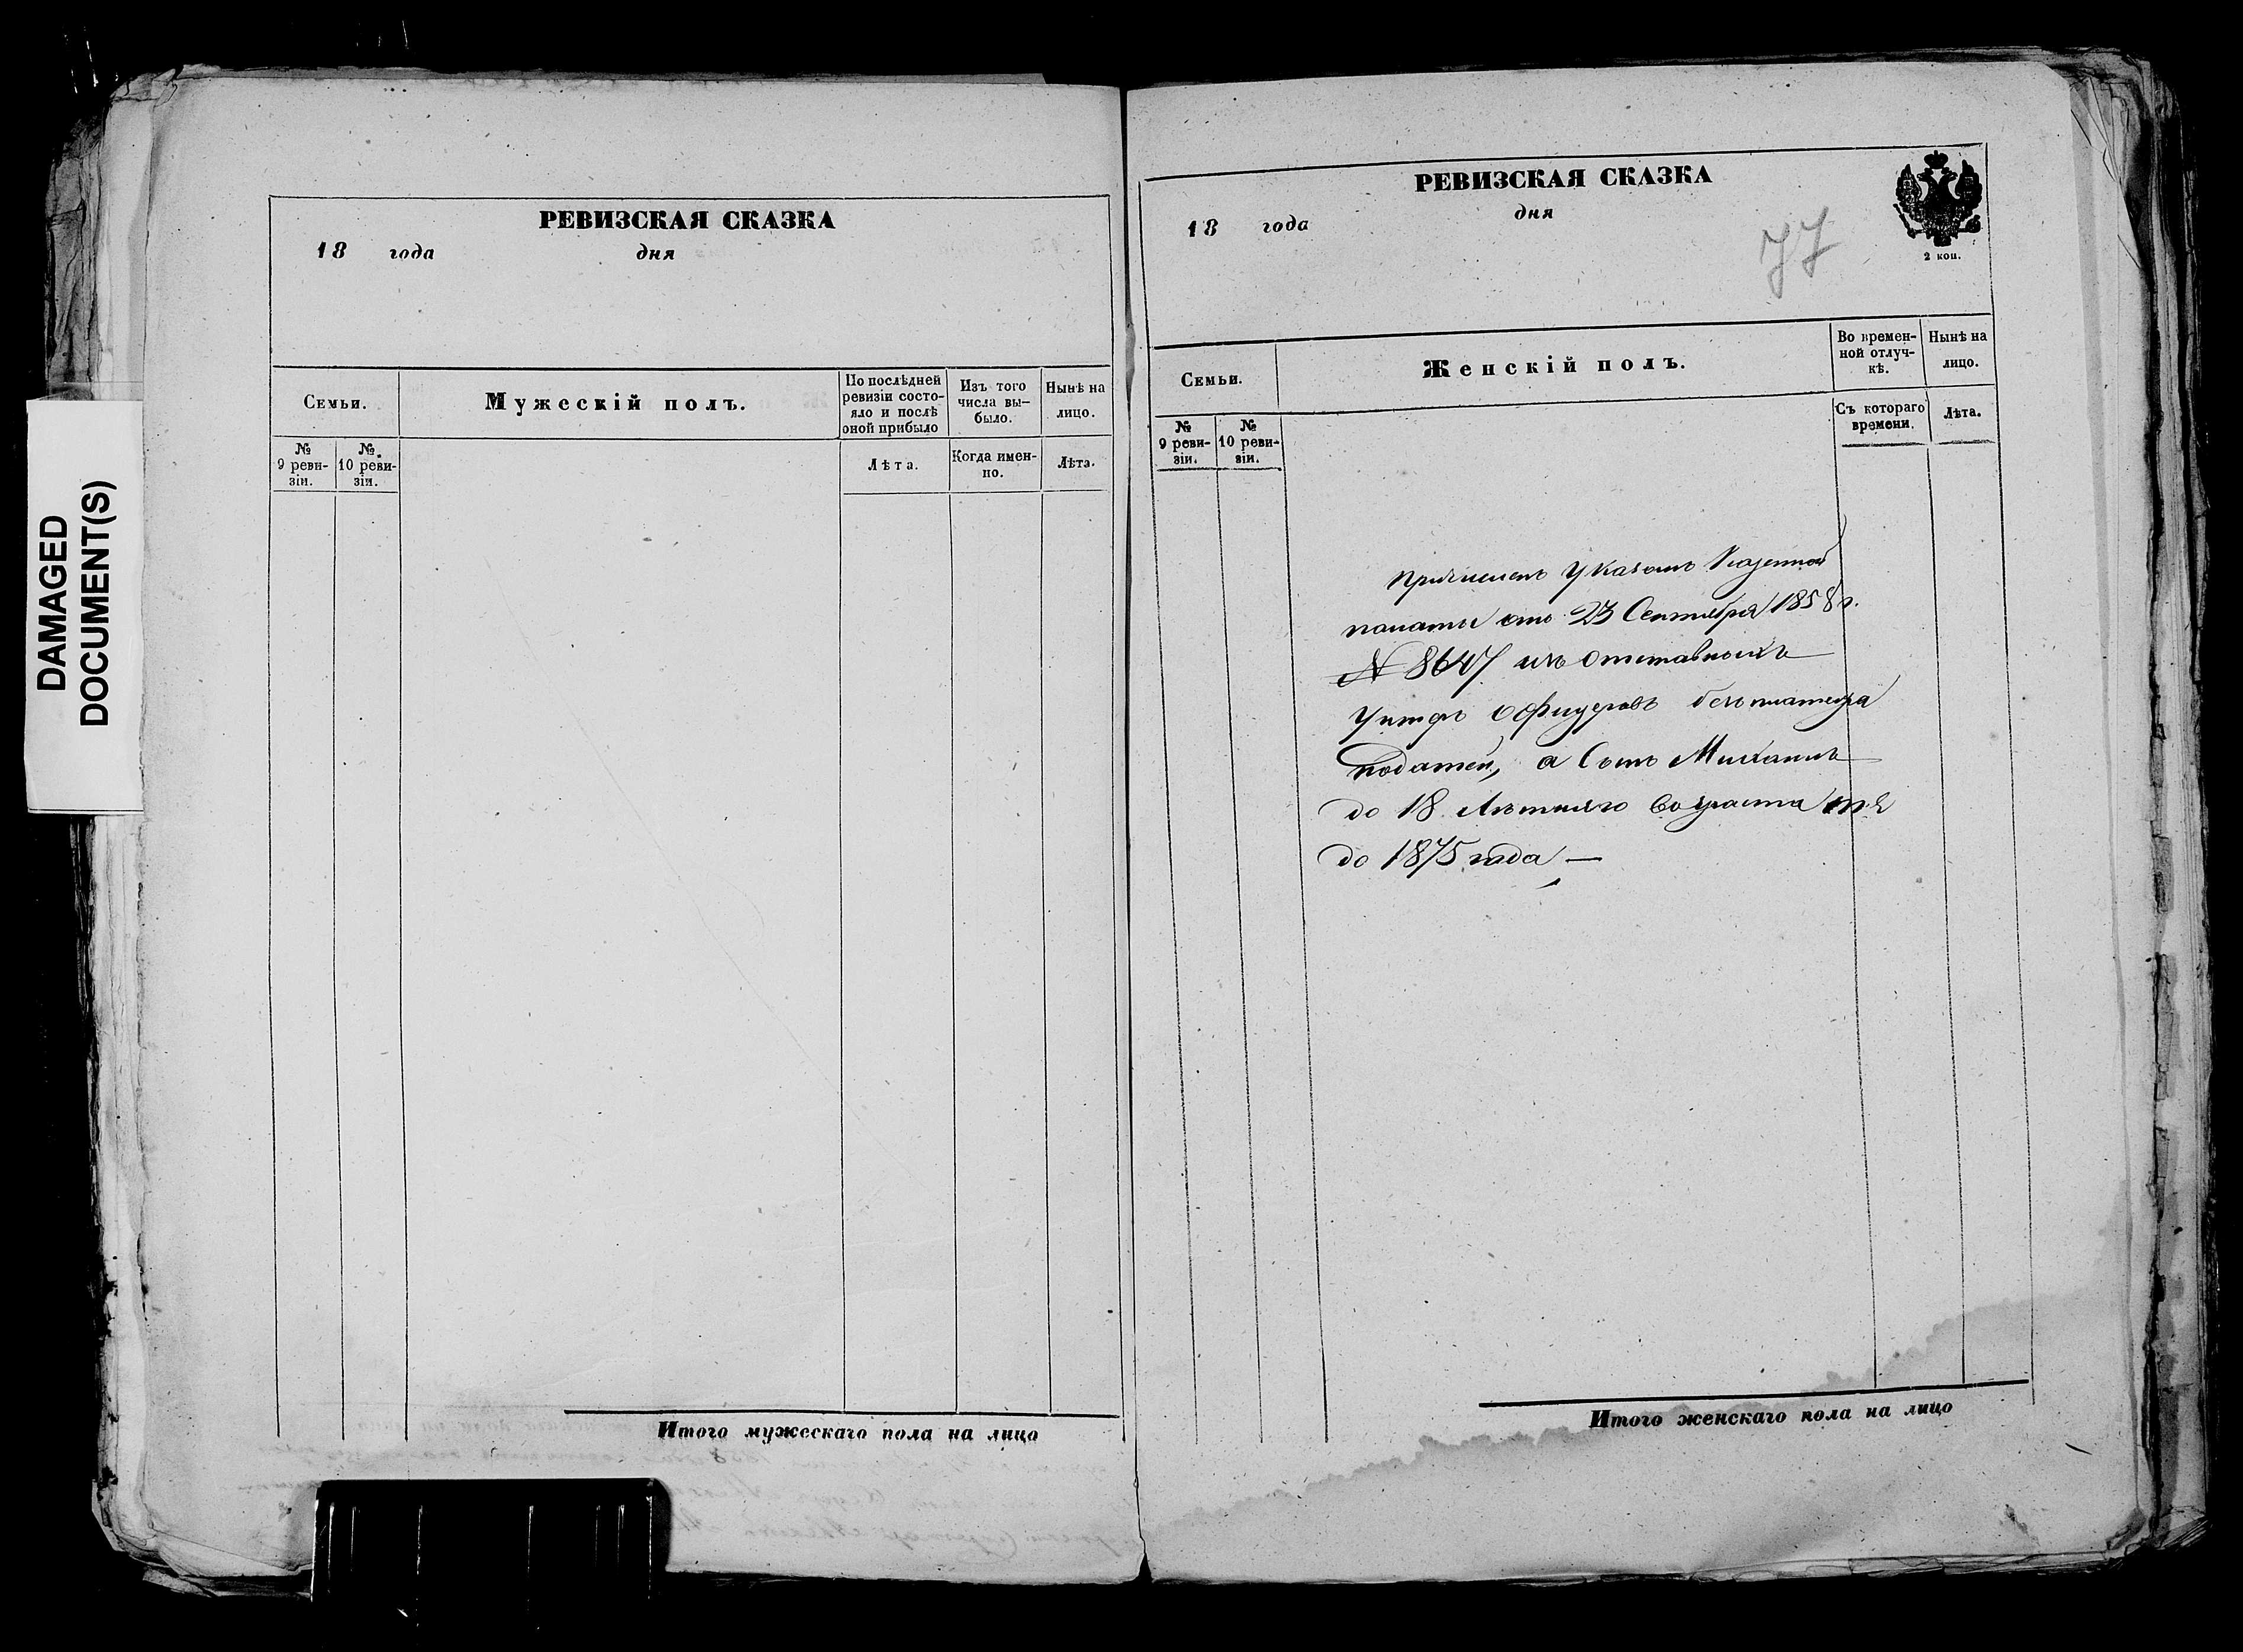 DAMAGED
DOCUMENT(S)
РЕВИЗСКАЯ СКАЗКА
18 года дня
Семьи.
Мужескій полъ.
По послѣдней
ревизіи состо-
яло и послѣ
оной прибыло
Изъ того
числа вы-
было.
Нынѣ на
лицо.
№
9 реви-
зіи.
№
10 реви-
зіи.
Лѣта.
Когда имен-
но.
Лѣта.
Итого мужескаго пола на лицо
РЕВИЗСКАЯ СКАЗКА
18 года дня
77
2 коп.
Семьи.
Женскій полъ.
Во времен-
ной отлуч-
кѣ.
Нынѣ на
лицо.
№
9 реви-
зіи.
№
10 реви-
зіи.
Съ котораго
времени.
Лѣта.
Причисленъ Указомъ Казенной
палаты отъ 23 Сентября 1858 г.
№ 8647 изъ отставныхъ
Унтеръ офицеровъ безъ платежа
податей, а Сынъ Михаилъ
до 18 Лѣтняго возраста т.е
до 1875 года —
Итого женскаго пола на лицо